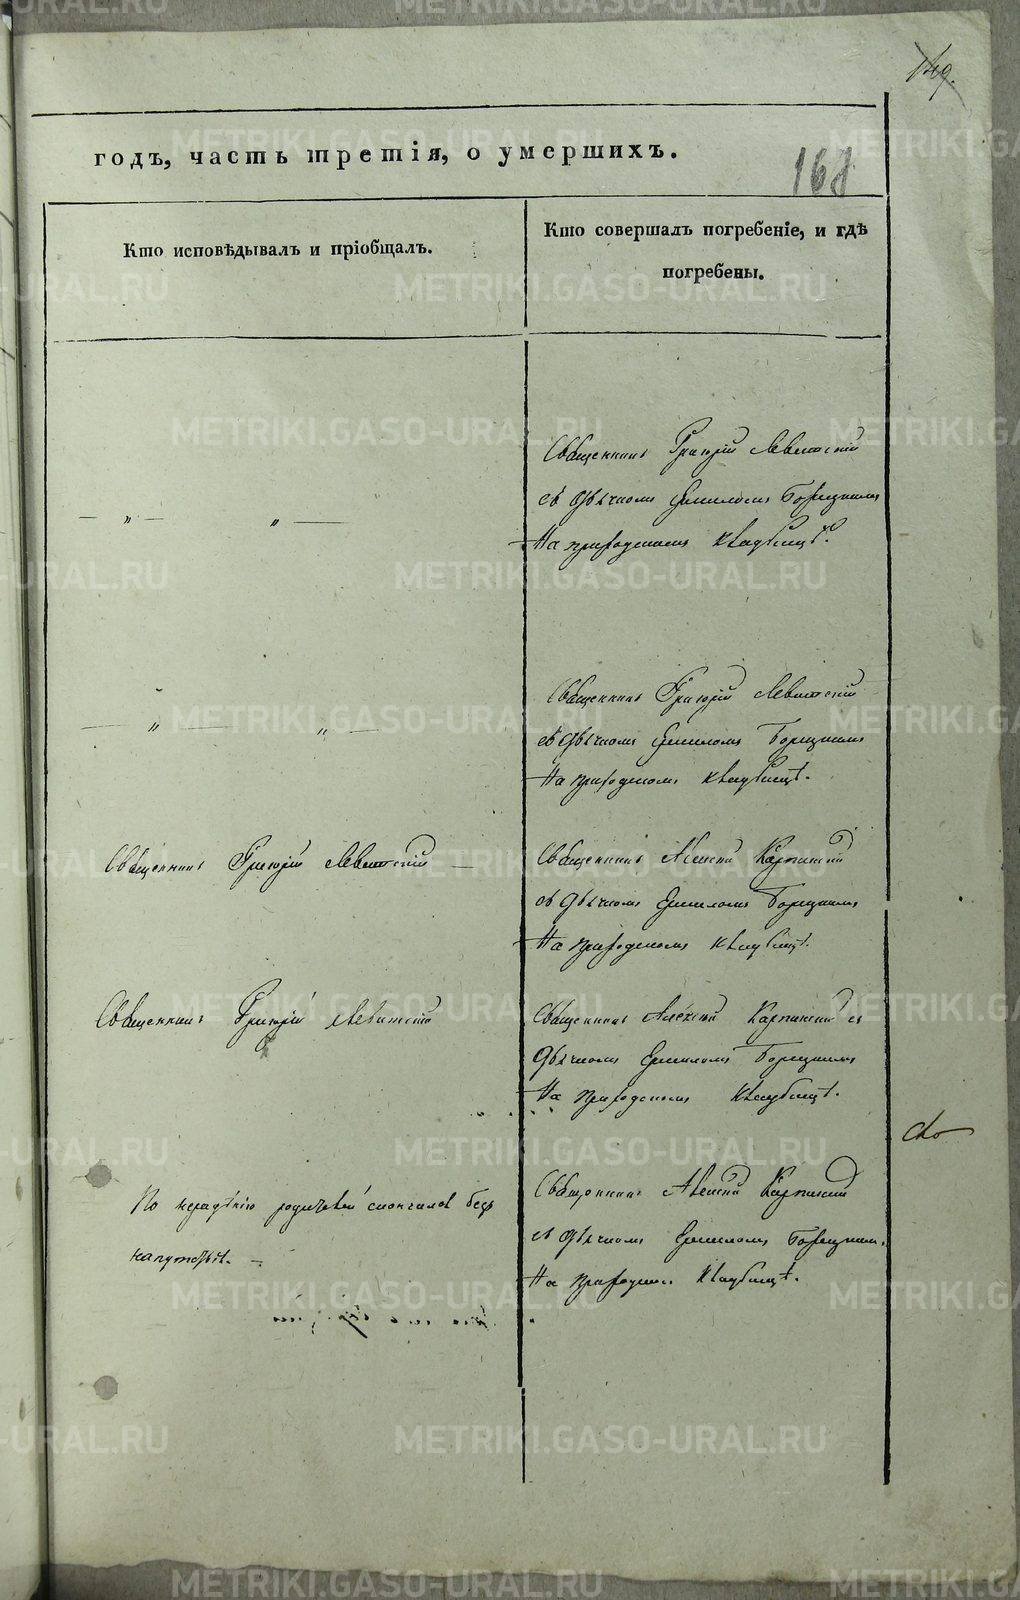 149.
годъ, часть третія, о умершихъ.
168
Кто исповѣдывалъ и пріобщалъ.
Кто совершалъ погребеніе, и гдѣ
погребены.
Священникъ Григорій Левитскій
съ дьячкомъ Ермиломъ
На приходскомъ кладбищѣ.
Священникъ Григорій Левитскій
съ дьячкомъ Ермиломъ
На приходскомъ кладбищѣ.
Священникъ Григорій Левитскій
Священникъ Алексій Карпинскій
съ дьячкомъ Ермиломъ
На приходскомъ кладбищѣ.
Священникъ Григорій Левитскій
Священникъ Алексій Карпинскій съ
дьячкомъ Ермиломъ
На приходскомъ кладбищѣ.
По нерадѣнію родителей скончался безъ
напутствія.
Священникъ Алексій Карпинскій
съ дьячкомъ Ермиломъ
На приходском кладбищѣ.
METRIKI.GASO-URAL.RU